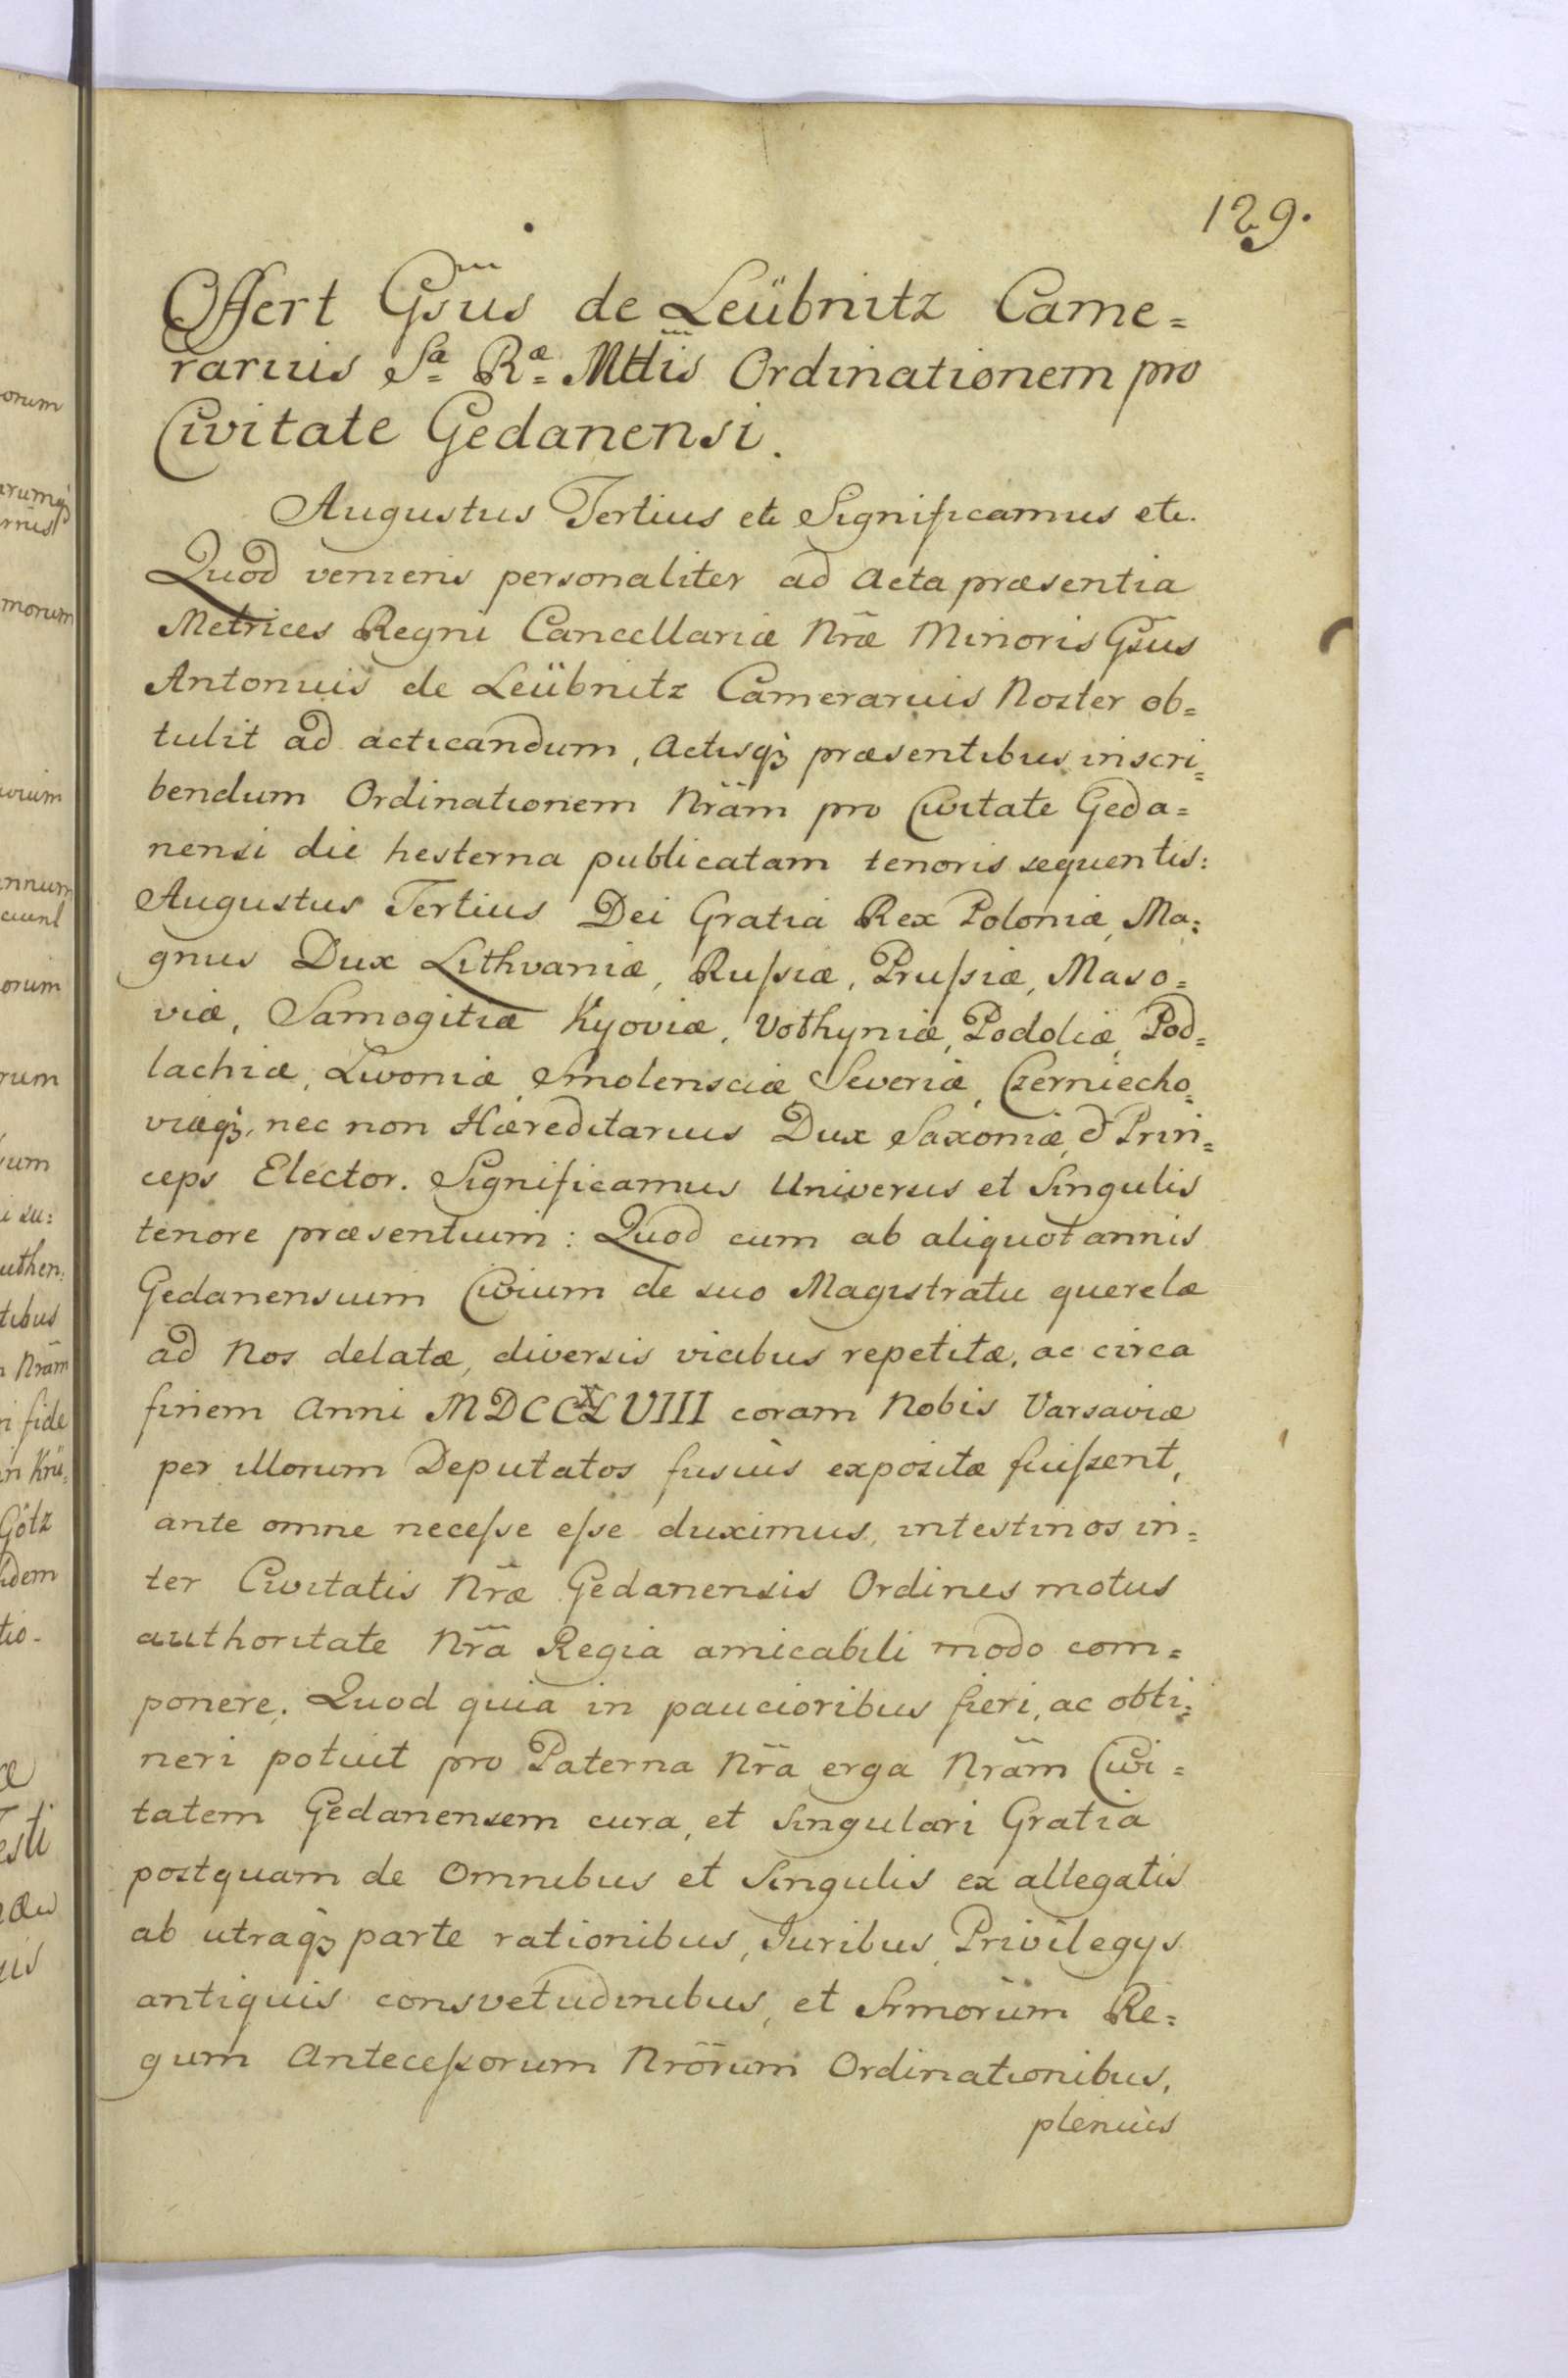 129.
Offert Gsūs de Leübnitz Came=
rarius Sæ Ræ Mttis Ordinationem pro
Civitate Gedanensi.
Augustus Tertius etc Significamus etc.
Quod veniens personaliter ad Acta præsentia
Metrices Regni Cancellariæ Nr̃æ Minoris Gsūs
Antonius de Leübnitz Camerarius Noster ob=
tulit ad acticandum, Actisqꝫ præsentibus inscri=
bendum Ordinationem Nrãm pro Civitate Geda=
nensi die hesterna publicatam tenoris sequentis:
Augustus Tertius Dei Gratia Rex Poloniæ, Ma=
gnus Dux Lithvaniæ, Ruſsiæ, Pruſsiæ, Maso=
viæ, Samogitiæ Kyoviæ, Volhyniæ, Podoliæ, Pod=
lachiæ, Livoniæ, Smolensciæ, Severiæ, Czerniecho=
viæqꝫ, nec non Hæreditarius Dux Saxoniæ, & Prin=
ceps Elector. Significamus Universis et Singulis
tenore præsentium: Quod cum ab aliquot annis
Gedanensium Civium de suo Magistratu querelæ
ad Nos delatæ, diversis vicibus repetitæ, ac circa
finem Anni MDCCXLVIII coram Nobis Varsaviæ
per illorum Deputatos fusius expositæ fuiſsent,
ante omne neceſse eſse duximus, intestinos in=
ter Civitatis Nr̃æ Gedanensis Ordines motus
authoritate Nr̃a Regia amicabili modo com=
ponere. Quod quia in paucioribus fieri, ac obti=
neri potuit pro Paterna Nr̃a erga Nrãm Civi=
tatem Gedanensem cura, et Singulari Gratia
postquam de Omnibus et Singulis ex allegatis
ab utraqꝫ parte rationibus, Iuribus, Privilegys
antiquis consvetudinibus, et Srmorum Re=
gum Anteceſsorum Nrõrum Ordinationibus,
plenius